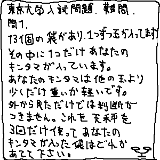 東京大学入試問題 難問
問1.
131個の袋があり、1つずつ玉が入ってます
その中に1つだけあなたの
キンタマが入っています。
あなたのキンタマは他の玉より
少しだけ重いか軽いです。
外から見ただけでは判断が
つきません。これを天秤を
3回だけ使って あなたの
キンタマが入った袋はどれか
あてて下さい。